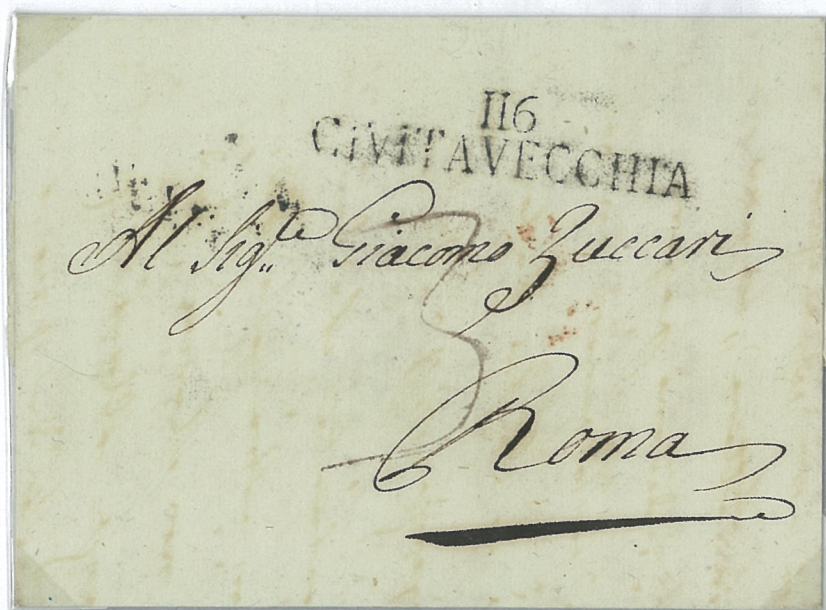 116
CIVITAVECCHIA
Al Sig.te Giacomo Zuccari
3
Roma